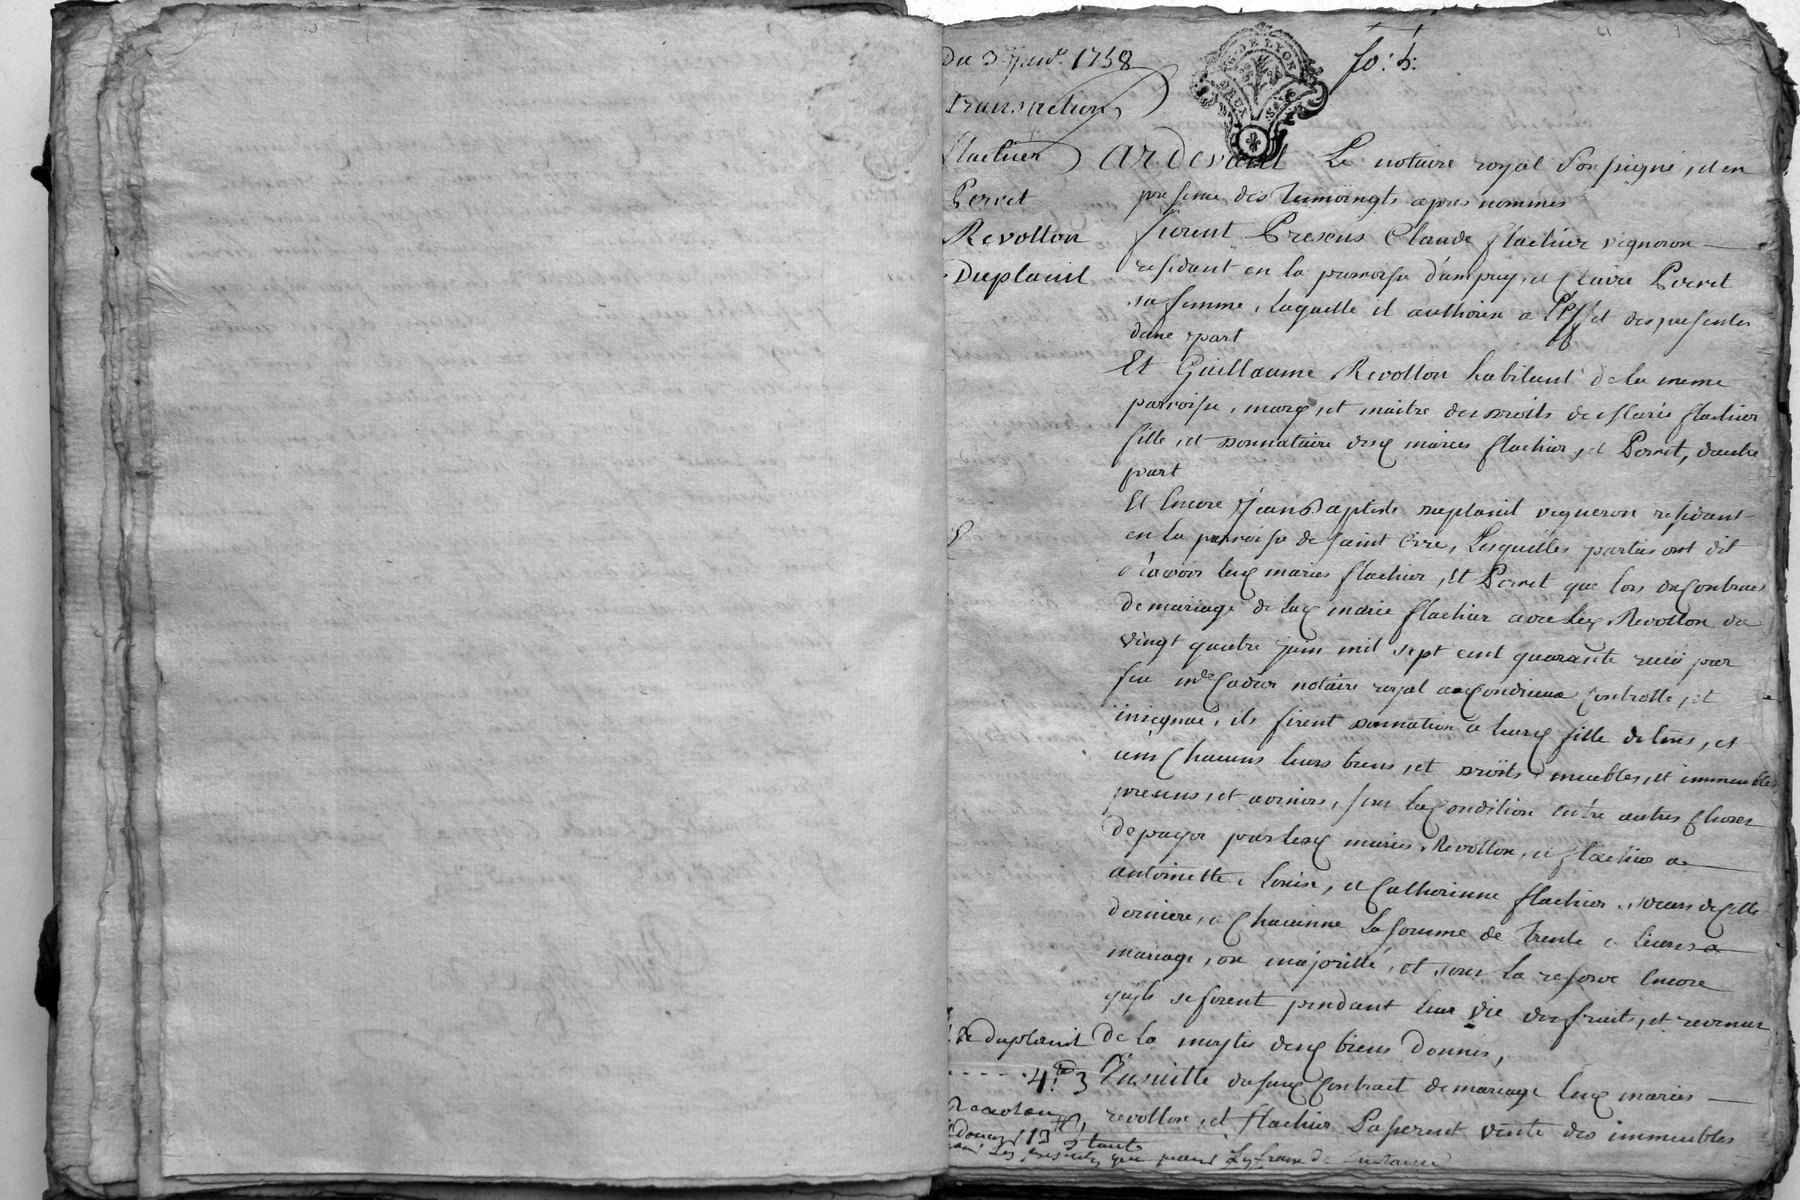 Du 3e Janv. 1758
fo: 5:
G. DE LYON
DEUX SOLS
Transaction
flachier
Perret
Revollon
Duplanil
Pardevant Le notaire royal Soussigné, et en
presence des temoingts apres nommés
furent Presens Claude flachier vigneron
residant en la parroisse d'ampuy, et Claire Perret
sa femme, laquelle il authorise a l'effet des presentes
dune part
Et Guillaume Revollon habitant de la meme
parroisse, mary, et maitre des droits de Marie flachier
fille, et donnataire desd maries flachier, et Perret, dautre
part
Et Encore Jean Baptiste duplanil vigneron residant
en la parroisse de saint Cire, Lesquelles parties ont dit
scavoir lesd maries flachier, Et Perret que lors du Contract
de mariage de lad marie flachier avec led Revollon du
vingt quatre juin mil sept cent quarante reçu par
feu me Cadar notaire royal a Condrieux Controllé, et
insignué, ils firent donnation a leurd fille de tous, et
uns Chacuns leurs biens, et droits, meubles, et immeubles
presens, et avenirs, sous la Condition entre autres Choses
de payer par lesd maries Revollon, et flachier a
antoinette, Louise, et Catherinne flachier, soeurs de Cette
derniere, a Chacunne La somme de trente livres a
mariage, ou majorité, et sous la reserve Encore
quils se firent pendant leur vie des fruits, et revenus
de la moytié desd biens donnés,
Ensuitte dususd Contract de mariage lesd maries
revollon, et flachier Passerent vente des immeubles
de duplanil
4 3